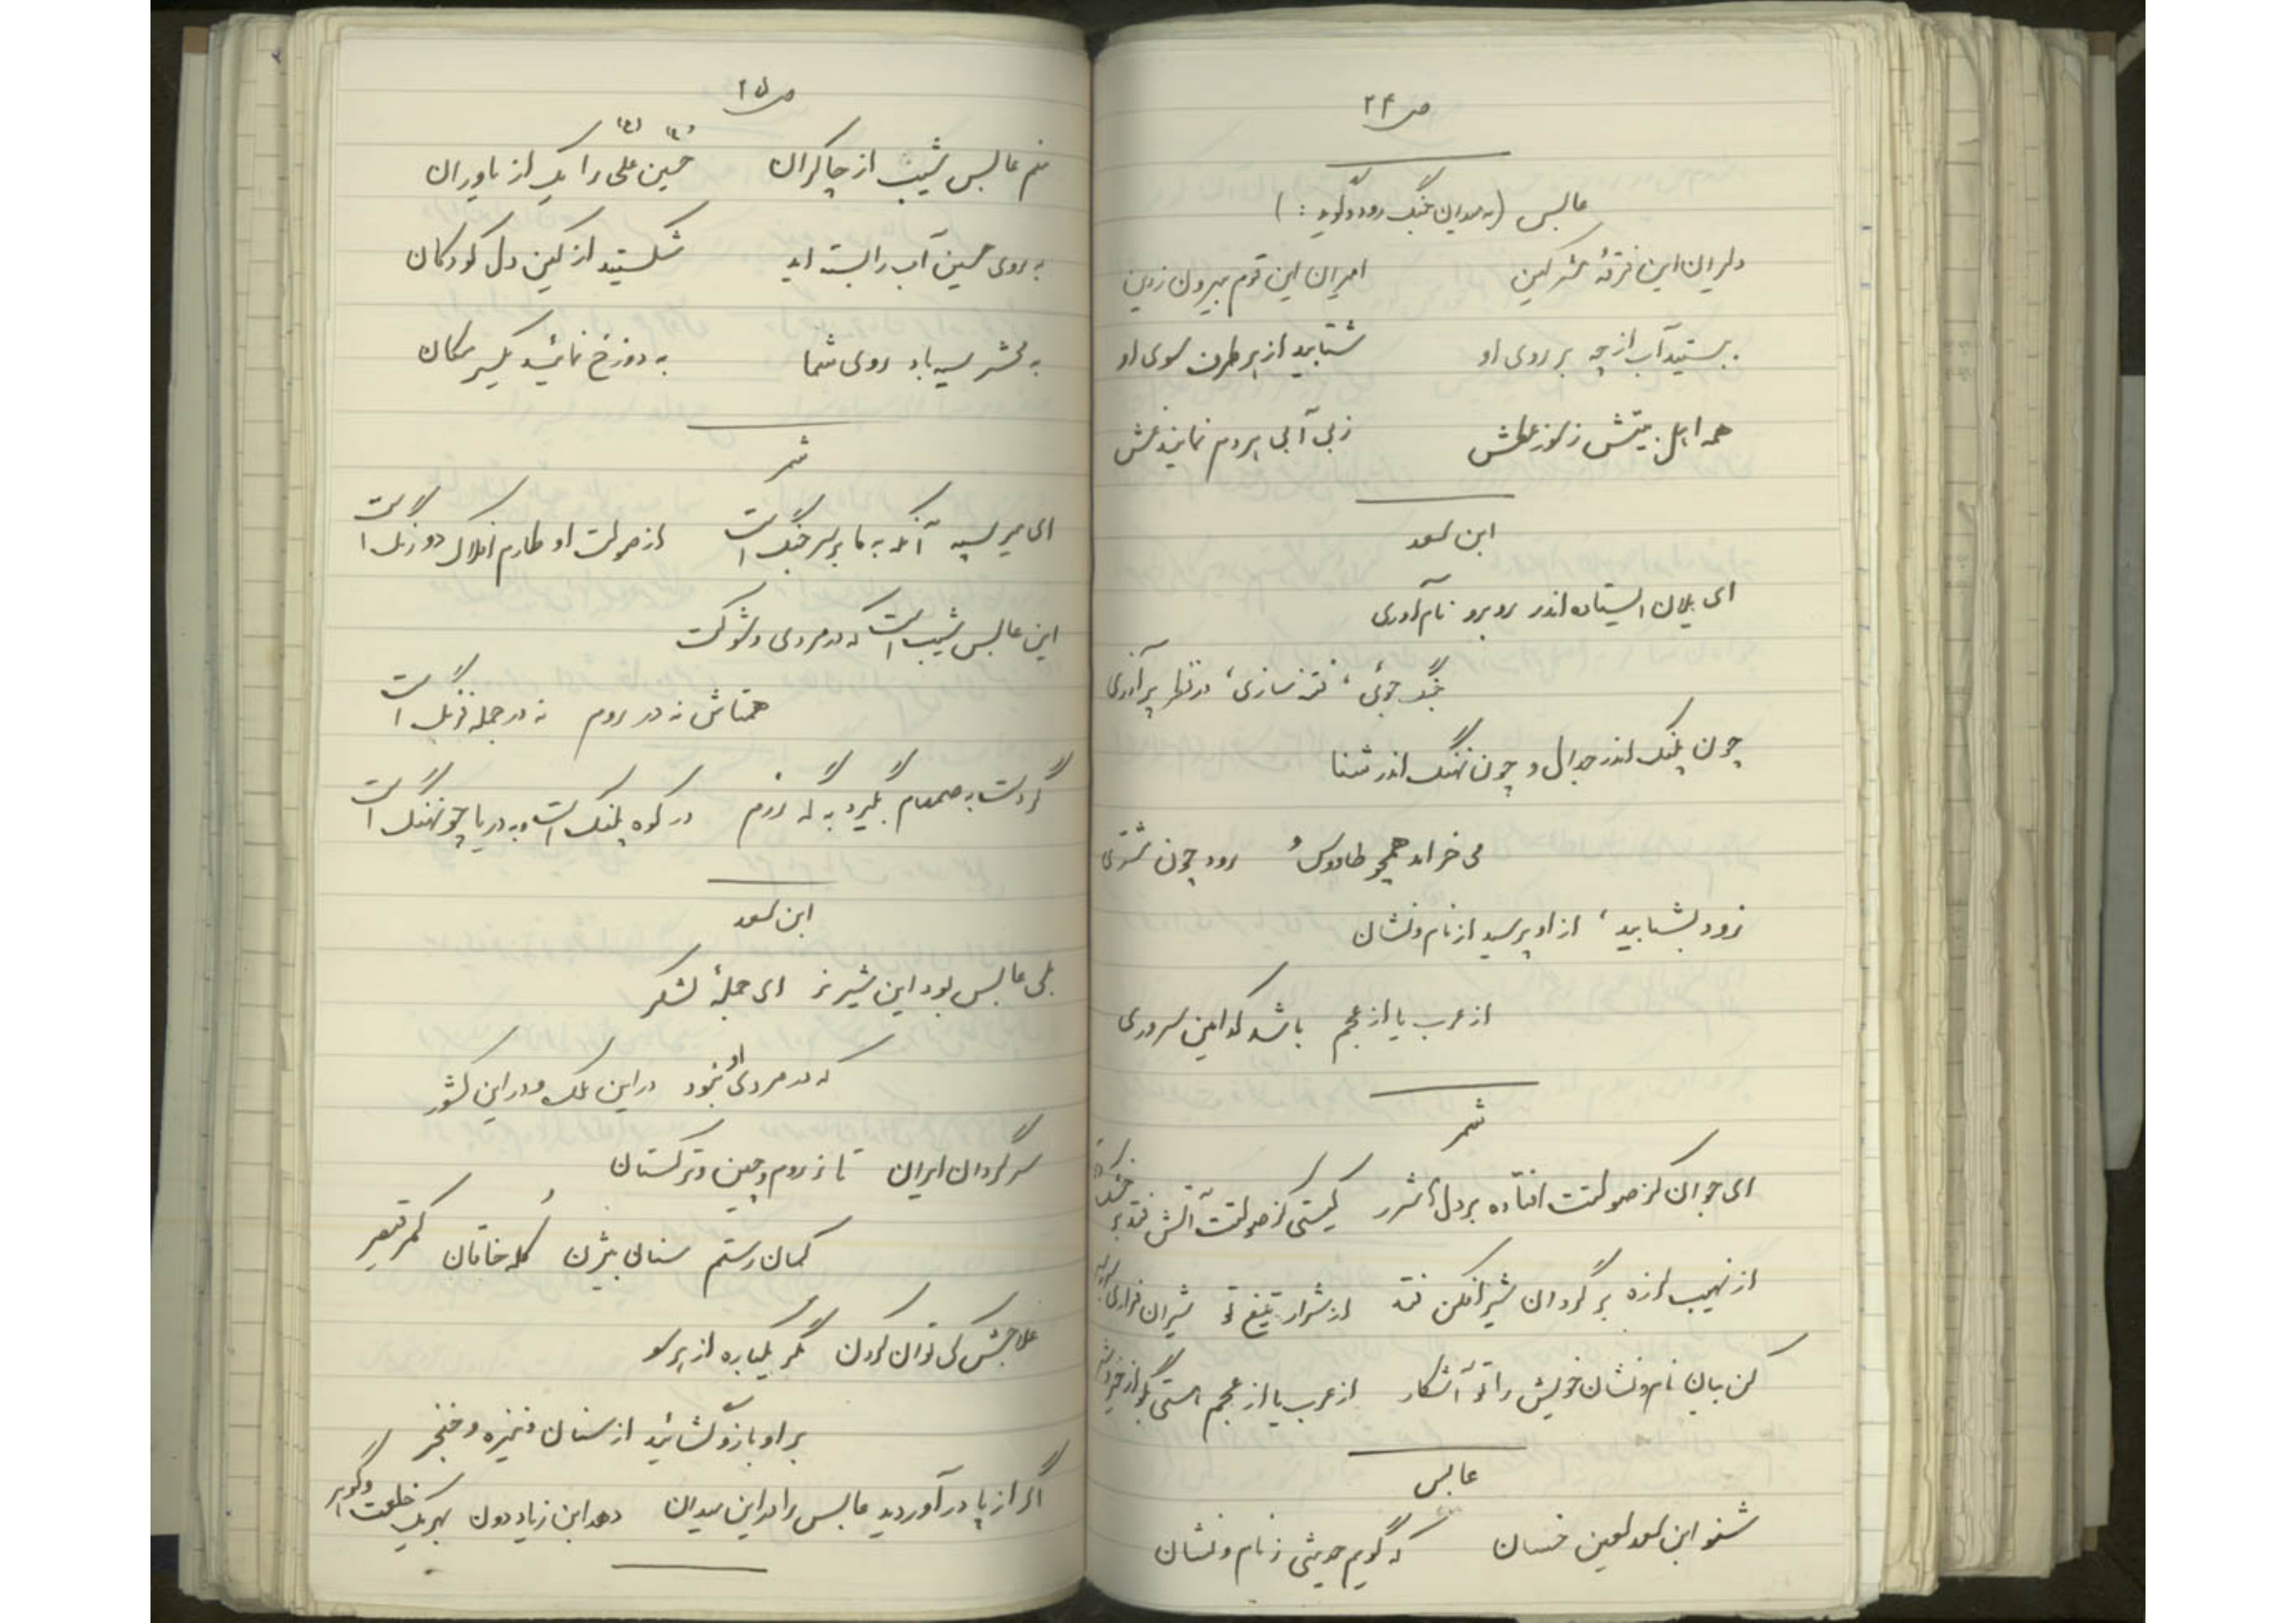 ص ۲۴
عابس (به میدان جنگ رود و گوید:)
دلیران این فرقهٔ مشرکین    امیران این قوم بیرون ز دین
ببستید آب از چه بر روی او    شتابید از هر طرف سوی او
همه اهل بیتش ز سوز عطش    ز بی آبی هر دم نمایند غش
ابن سعد
ای یلان استاده اندر روبرو نام‌آوری
جنگ جوئی، فتنه سازی، در نظر پر آذری
چون پلنگ اندر جدال و چون نهنگ اندر شنا
می خرامد همچو طاووس و رود چون مشتری
زود بشتابید، از او پرسید از نام و نشان
از عرب یا از عجم باشد کدامین سروری
شمر
ای جوان کز صولتت افتاده بر دلها شرر    کیستی کز صولتت آتش فتد بر خشک و تر
از نهیبت لرزه بر گردان شیر افکن فتد    از شرار تیغ تو شیران فراری
کن بیان نام و نشان خویش را تو آشکار    از عرب یا از عجم هستی بگو از خیر و شر
عابس
شنو ابن سعد لعین خسان    که گویم حدیثی ز نام و نشان
ص ۲۵
منم عابس شبیب از چاکران    حسین علی را یک از یاوران
به روی حسین آب را بسته اید    شکستید از کین دل کودکان
به محشر سیه باد روی شما    به دوزخ نمائید یکسر مکان
شمر
ای میر سپه آنکه به ما بر سر جنگ است    از صولت او طارم افلاک دو رنگ است
این عابس شبیب است که در مردی و شوکت
همتاش نه در روم نه در جمله فرنگ است
گر دست به صمصام بگیرد به گه رزم    در کوه پلنگ است و به دریا چو نهنگ است
ابن سعد
بلی عابس بود این شیر نر ای جملهٔ لشکر
که در مردی چو او نبود در این ملک و در این کشور
سر گردان ایران تا ز روم و چین و ترکستان
کمان رستم سنان بیژن کله خاقان کمر قیصر
علاجش کی توان کردن مگر یکباره از هر سو
بر او بازو گشائید از سنان و نیزه و خنجر
اگر از پا در آوردید عابس را در این میدان    دهد ابن زیاد دون بهر یک خلعت و گوهر